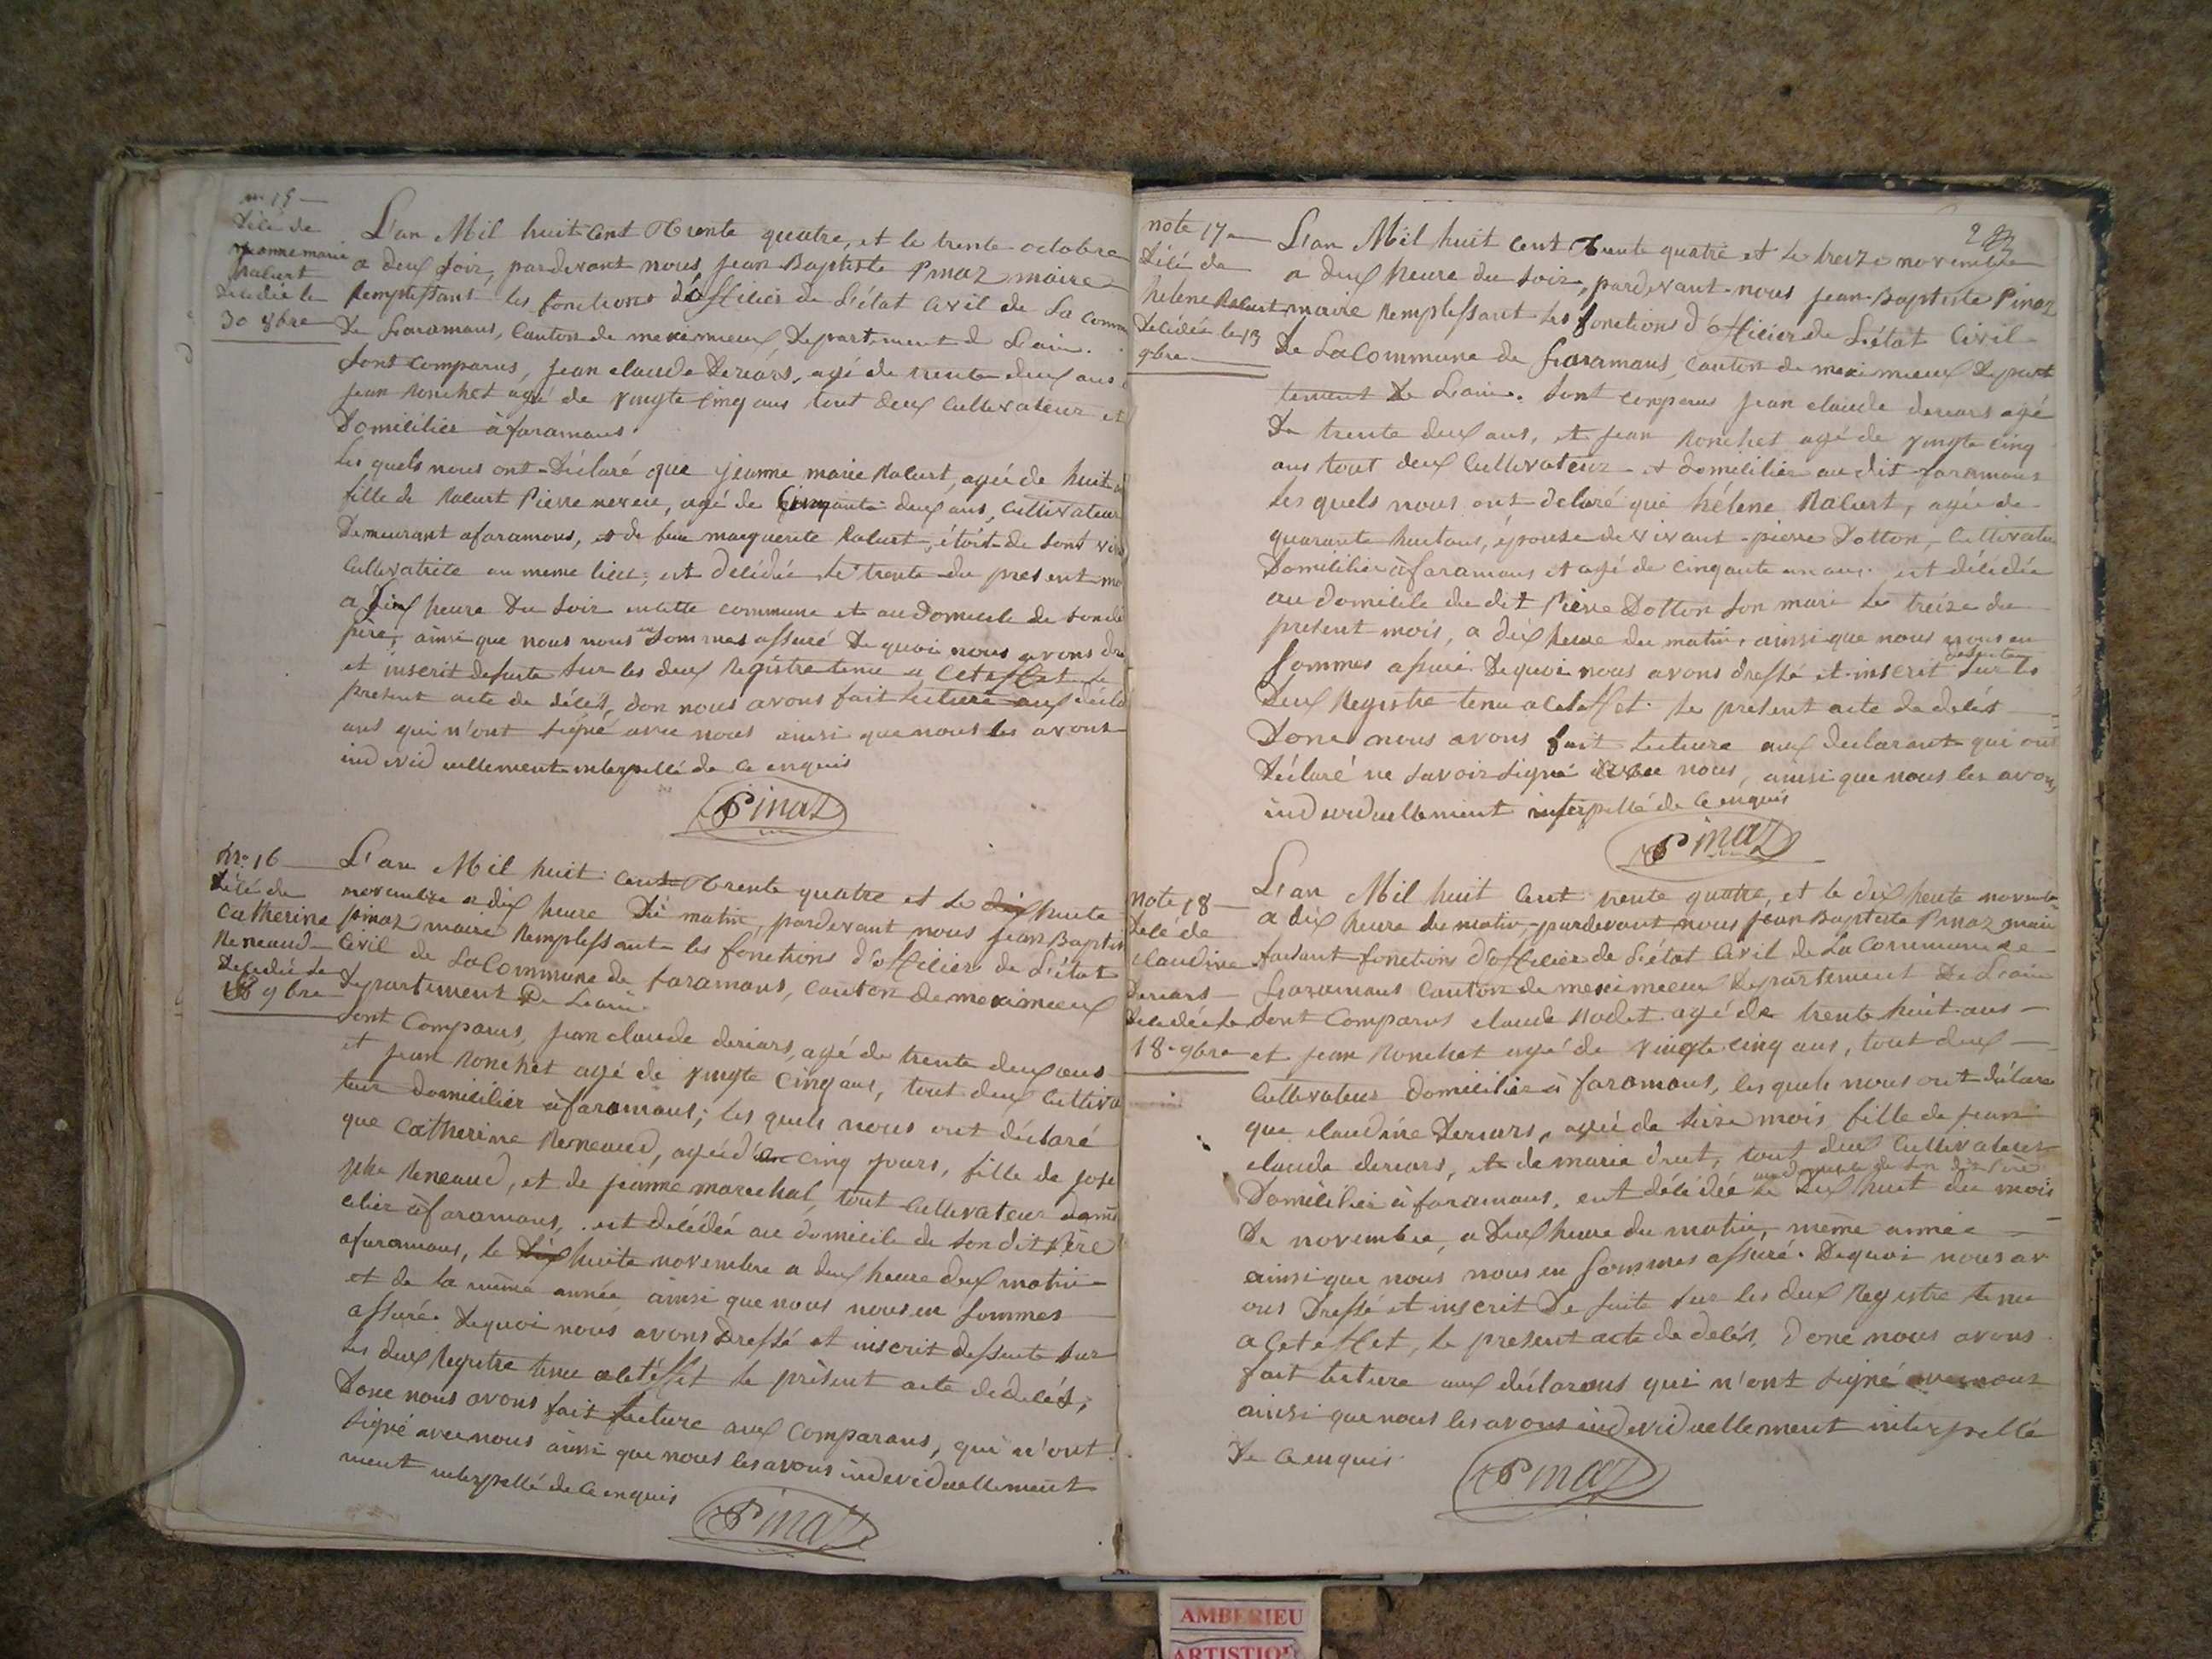 n. 15
Décé de
jeanne marie
Ralurt
décédée le
30 8bre
L'an Mil huit cent Trente quatre, et le trente octobre
a deux soir, pardevant nous jean Baptiste Pinaz maire
Remplissant les fonctions d'officier de L'état Civil de La Comm
De faramans, Canton de meximieux, Departement de L'ain.
Sont Comparus, jean claude Deriars, agé de trente deux ans
jean Ronchet agé de vingte cinq ans tout deux Cultivateur et
Domicilier à faramans.
Les quels nous ont Déclaré que jeanne marie Ralurt, agée de huit
fille de Ralurt Pierre neveu, agé de Cinquante deux ans, Cultivateur
Demeurant a faramans, et de feue marguerite Ralurt, étoit de sont viv
Cultivatrice au meme lieu; est décédée le trente du present mo
a dix heure Du Soir en cette commune et au Domicile de son di
père, ainsi que nous nous en sommes assuré De quoi nous avons dre
et inscrit de suite sur les deux Registre tenu a cet effet le
present acte de décés, don nous avons fait lecture aux décla
ans qui n'ont signé avec nous ainsi que nous les avons
individuellement interpellé de ce enquis
Pinaz
No. 16
Décé de
Catherine
Reneaud
Décédée le
8 9bre
L'an Mil huit cent Trente quatre et le dix huite
novembre a dix heure du matin, pardevant nous jean Baptis
pinaz maire Remplissant les fonctions d'officier de L'état
Civil de La Commune de faramans, canton de meximieux
Departement De L'ain.
Sont Comparus, jean claude deriars, agé de trente deux ans
et jean Ronchet agé de vingte cinq ans, tout deux Cultiva
teur domicilier à faramans; les quels nous ont déclaré
que Catherine Reneaud, agée d'en cinq jours, fille de jose
phe Reneaud, et de jeanne marechal, tout Cultivateur domi
cilier à faramans, est décédée au domicile de son dit Père
a faramans, le dix huite novembre a deux heure deux matin
et de la même année ainsi que nous nous en sommes
assuré. De quoi nous avons Dressé et inscrit de suite sur
les deux Registre tenu a cet éffet le présent acte de decés;
Donc nous avons fait lecture aux Comparans, qui n'ont
signé avec nous ainsi que nous les avons individuellement
ment interpellé de ce enquis
Pinaz
note 17
Décé de
helene Ralurt
Décédée le 13
9bre
L'an Mil huit cent Trente quatre et le treize novembre
a deux heure du soir, pardevant nous jean Baptiste Pinaz
maire Remplissant les fonctions d'officier de L'état Civil
De La Commune de faramans, canton de meximieux Depart
tement De L'ain. Sont comparus jean claude deriars agé
De trente deux ans, et jean Ronchet agé de vingte cinq
ans tout deux Cultivateur et domicilier au dit faramans
les quels nous ont declaré que hélene Ralurt, agée de
quarante huit ans, épouse de vivant pierre Dotton, Cultivateu
Domicilier à faramans et agé de cinqante un ans. est décédée
au domicile du dit Pierre Dotton son mari le treize du
present mois, a dix heure du matin, ainsi que nous nous en
sommes assuré. De quoi nous avons dressé et inscrit de suite sur les
Deux Registre tenu a cet effet le présent acte de decés
Donc nous avons fait lecture aux declarant qui ont
Déclaré ne savoir signé avec nous, ainsi que nous les avons
individuellement interpellé de ce enquis
Pinaz
note 18
Décé de
claudine
Deriars
Décédée le
18 9bre
L'an Mil huit Cent trente quatre, et le dix huite novemb
a dix heure du matin pardevant nous jean Baptiste Pinaz mair
faisant fonctions d'officier de L'état Civil de La Commune de
faramans canton de meximieux Departement De L'ain
Sont Comparus claude Rodet agé de trente huit ans
et jean Ronchet agé de vingte cinq ans, tout deux
Cultivateur domicilier à faramans, les quels nous ont déclaré
que claudine Deriars, agée de seize mois fille de jean
claude deriars, et de marie druet, tout deux Cultivateur
Domicilier à faramans, est décédée au domicile de son dit Père le Dix huit du mois
De novembre, a Deux heure du matin, même année
ainsi que nous nous en sommes assuré. De quoi nous av
ons Dressé et inscrit De suite sur les deux Registre tenu
a cet effet, le present acte de decés, donc nous avons
fait lecture aux déclarans qui n'ont signé avec nous
ainsi que nous les avons individuellement interpellé
De ce enquis.
Pinaz
AMBERIEU
ARTISTIQ